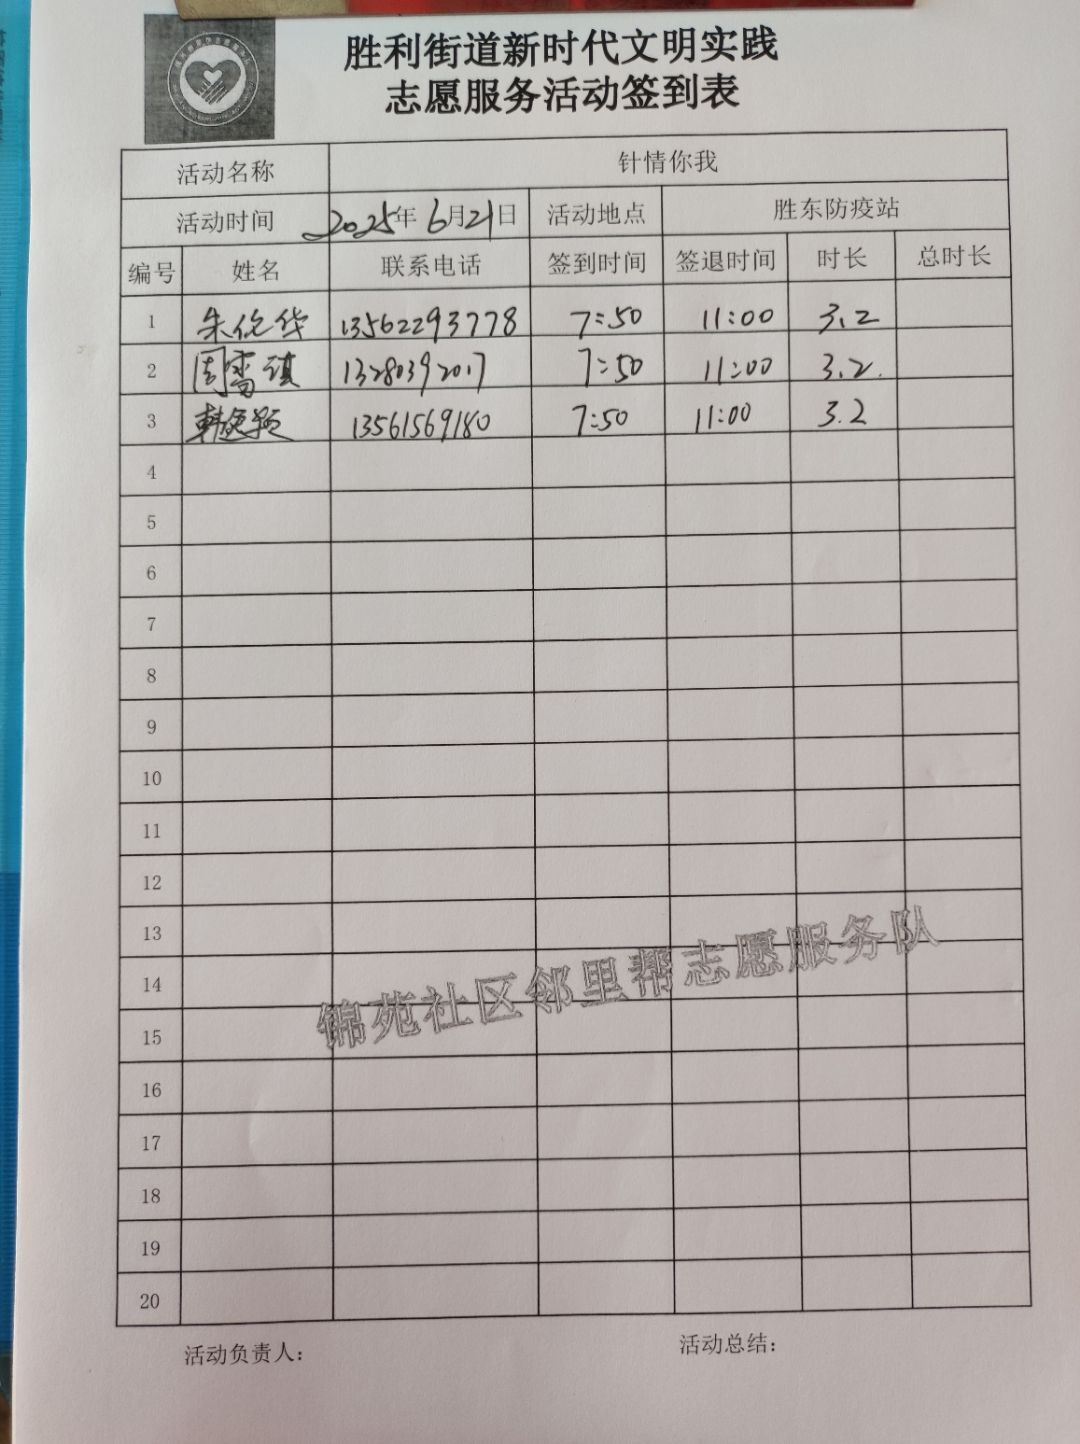 胜利街道新时代文明实践
志愿服务活动签到表
活动名称 针情你我
活动时间 2025年6月21日 活动地点 胜东防疫站
编号 姓名 联系电话 签到时间 签退时间 时长 总时长
1 朱伦华 13562293778 7:50 11:00 3.2
2 周雪琪 13280392017 7:50 11:00 3.2.
3 韩 颖 13561569180 7:50 11:00 3.2
4
5
6
7
8
9
10
11
12
13
14
锦苑社区邻里帮志愿服务队
15
16
17
18
19
20
活动负责人： 活动总结：